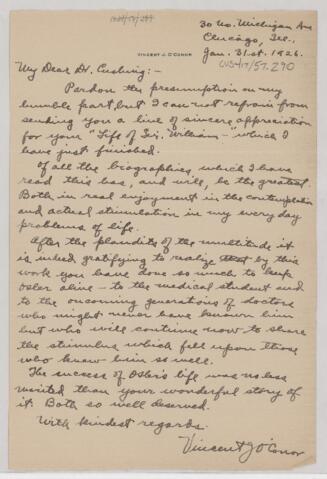 CUS417/57.289
30 No. Michigan Ave
Chicago, Ill.
Jan. 31st. 1926.
CUS417/57.290
VINCENT J. O'CONOR
My Dear Dr. Cushing:-
Pardon the presumption on my
humble part, but I can not refrain from
sending you a line of sincere appreciation
for your "Life of Sir William -" which I
have just finished.
Of all the biographies which I have
read this has, and will, be the greatest.
Both in real enjoyment in the contemplation
and actual stimulation in my everyday
problems of life.
After the plaudits of the multitude it
is indeed gratifying to realize that by this
work you have done so much to keep
Osler alive - to the medical student and
to the oncoming generations of doctors
who might never have known him
but who will continue now to share
the stimulus which fell upon those
who knew him so well.
The success of Osler's life was no less
merited than your wonderful story of
it. Both so well deserved.
With kindest regards.
Vincent J O'Conor